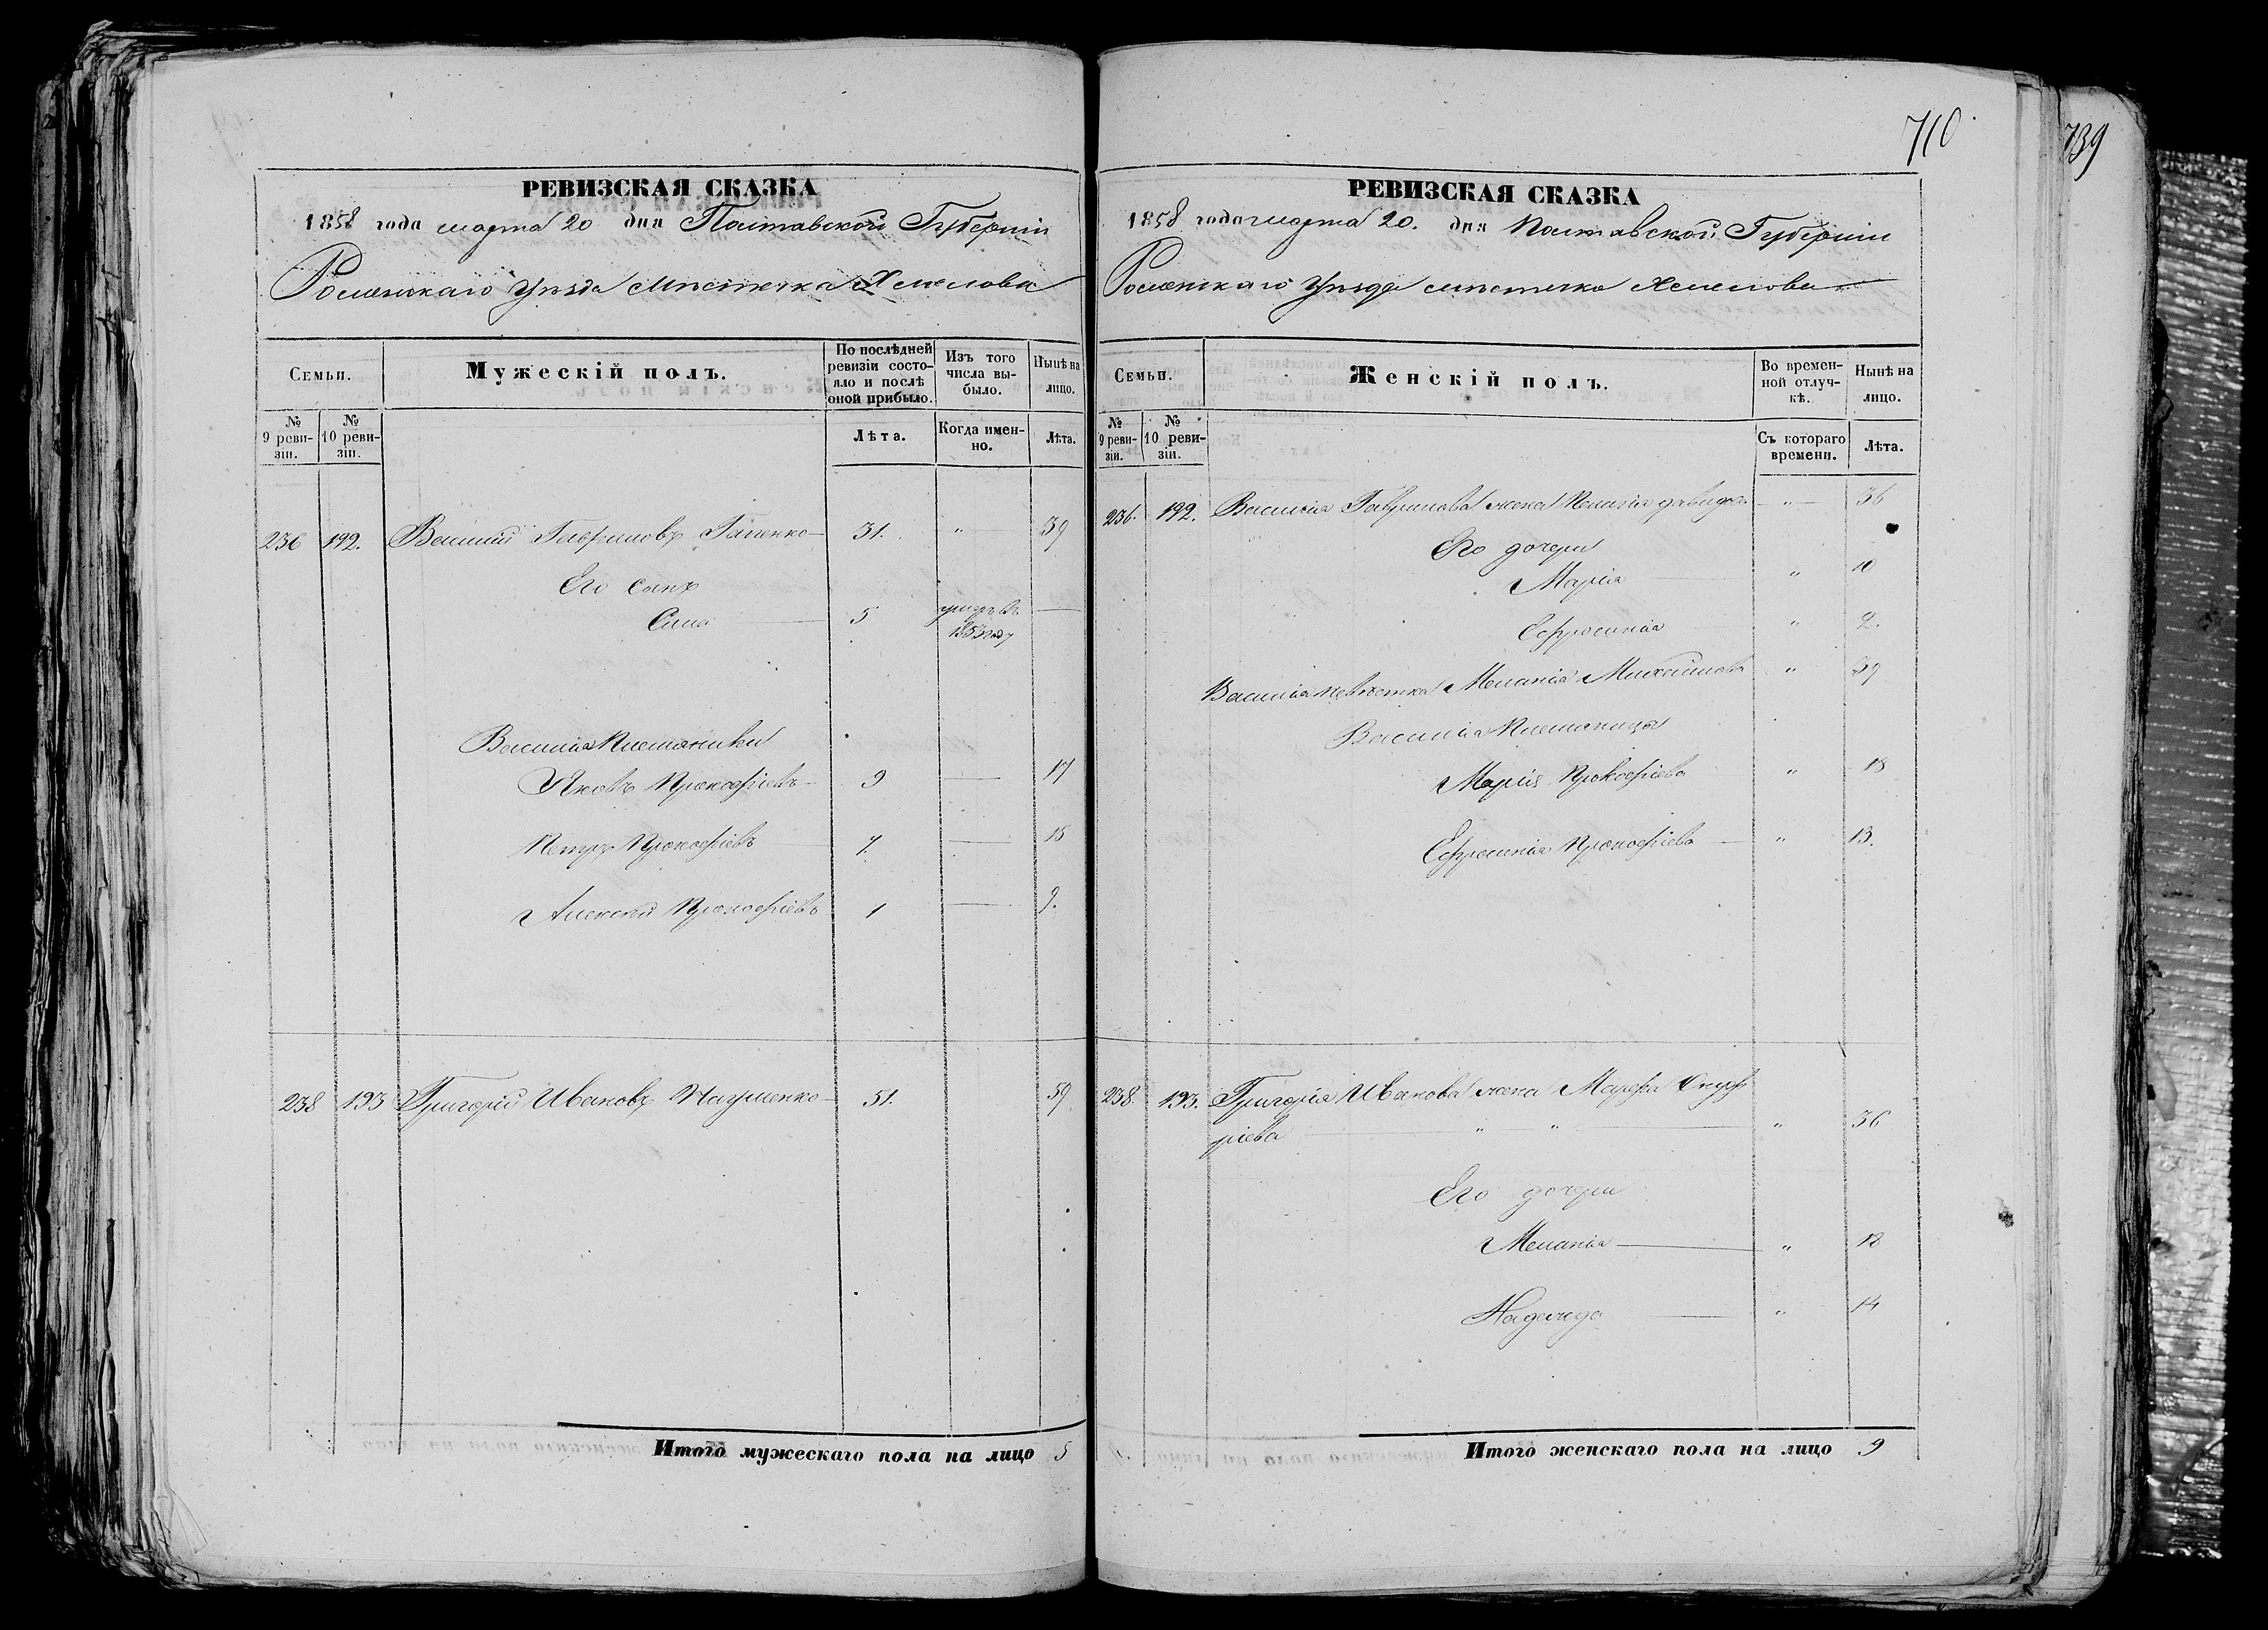 710
739
РЕВИЗСКАЯ СКАЗКА
1858 года марта 20 дня Полтавской Губерніи
Роменскаго Уѣзда Мѣстечка Хмелова
Семьи.
Мужескій полъ.
По послѣдней ревизіи состояло и послѣ оной прибыло.
Изъ того числа выбыло.
Нынѣ на лицо.
№ 9 ревизіи.
№ 10 ревизіи.
Лѣта.
Когда именно.
Лѣта.
236 192. Василій Гавриловъ Гапенко 31. " 39
Его сынъ
Сила 5 умеръ въ 1853 году
Василія Племяники
Яковъ Прокофіевъ 9 17
Петръ Прокофіевъ 7. 15
Алексѣй Прокофіевъ 1 9.
238 193 Григорій Ивановъ Науменко 51. 59
Итого мужескаго пола на лицо 5
РЕВИЗСКАЯ СКАЗКА
1858 года марта 20. дня Полтавской Губерніи
Роменскаго Уѣзда мѣстечка Хмелова
Семьи.
Женскій полъ.
Во временной отлучкѣ.
Нынѣ на лицо.
№ 9 ревизіи.
№ 10 ревизіи.
Съ котораго времени.
Лѣта.
236. 192. Василія Гаврилова жена Пелагія Давидова " 36
Его дочери
Марія " 10
Ефросинія " 2.
Василія невѣстка Меланія Михайлова " 39
Василія Племяницы
Марія Прокофіева " 18
Ефросинія Прокофіева " 13.
238. 193. Григорія Иванова жена Марфа Онуф
ріева " " " 36
Его дочери
Меланія " 18
Надежда " 14
Итого женскаго пола на лицо 9